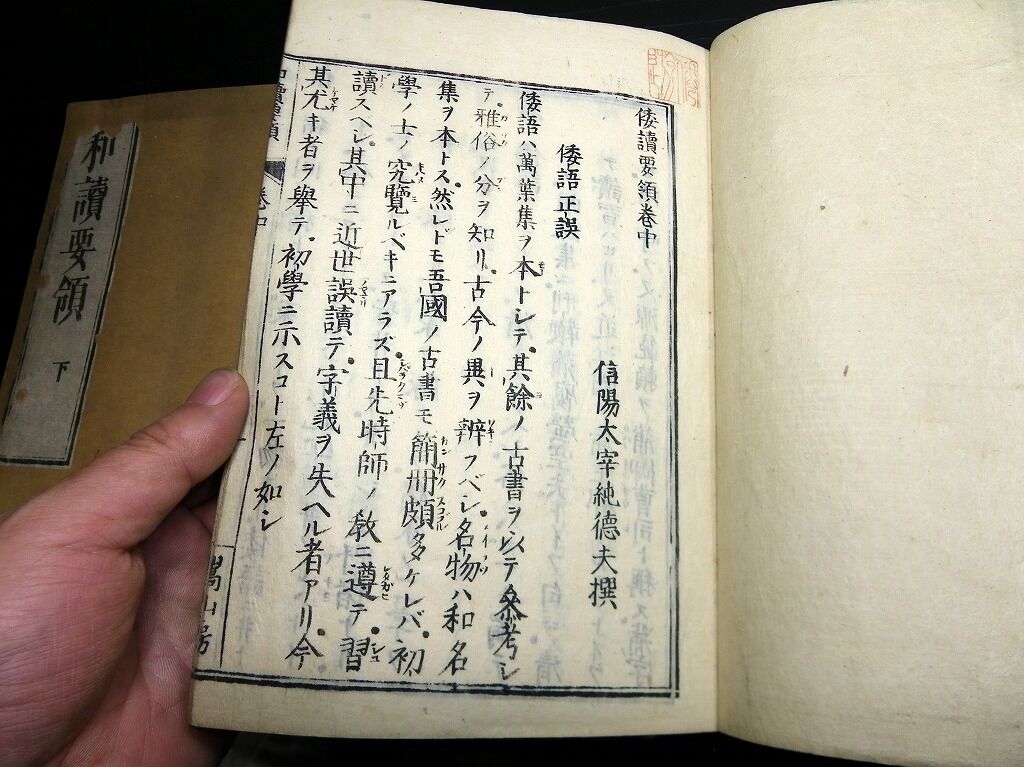 倭讀要領卷中
信陽太宰純德夫撰
倭語正誤
倭語ハ萬葉集ヲ本トシテ其餘ノ古書ヲ以テ叅考シ
テ雅俗ノ分ヲ知リ古今ノ異ヲ辨フベシ名物ハ和名
集ヲ本トス然レドモ吾國ノ古書モ簡冊頗多ケレバ初
學ノ士ノ究覽ルベキニアラズ且先時師ノ教ニ遵テ習
讀スヘシ其中ニ近世誤讀テ字義ヲ失ヘル者アリ今
其尤キ者ヲ舉テ初學ニ示スコト左ノ如シ
卷中
嵩山房
和讀要領 下